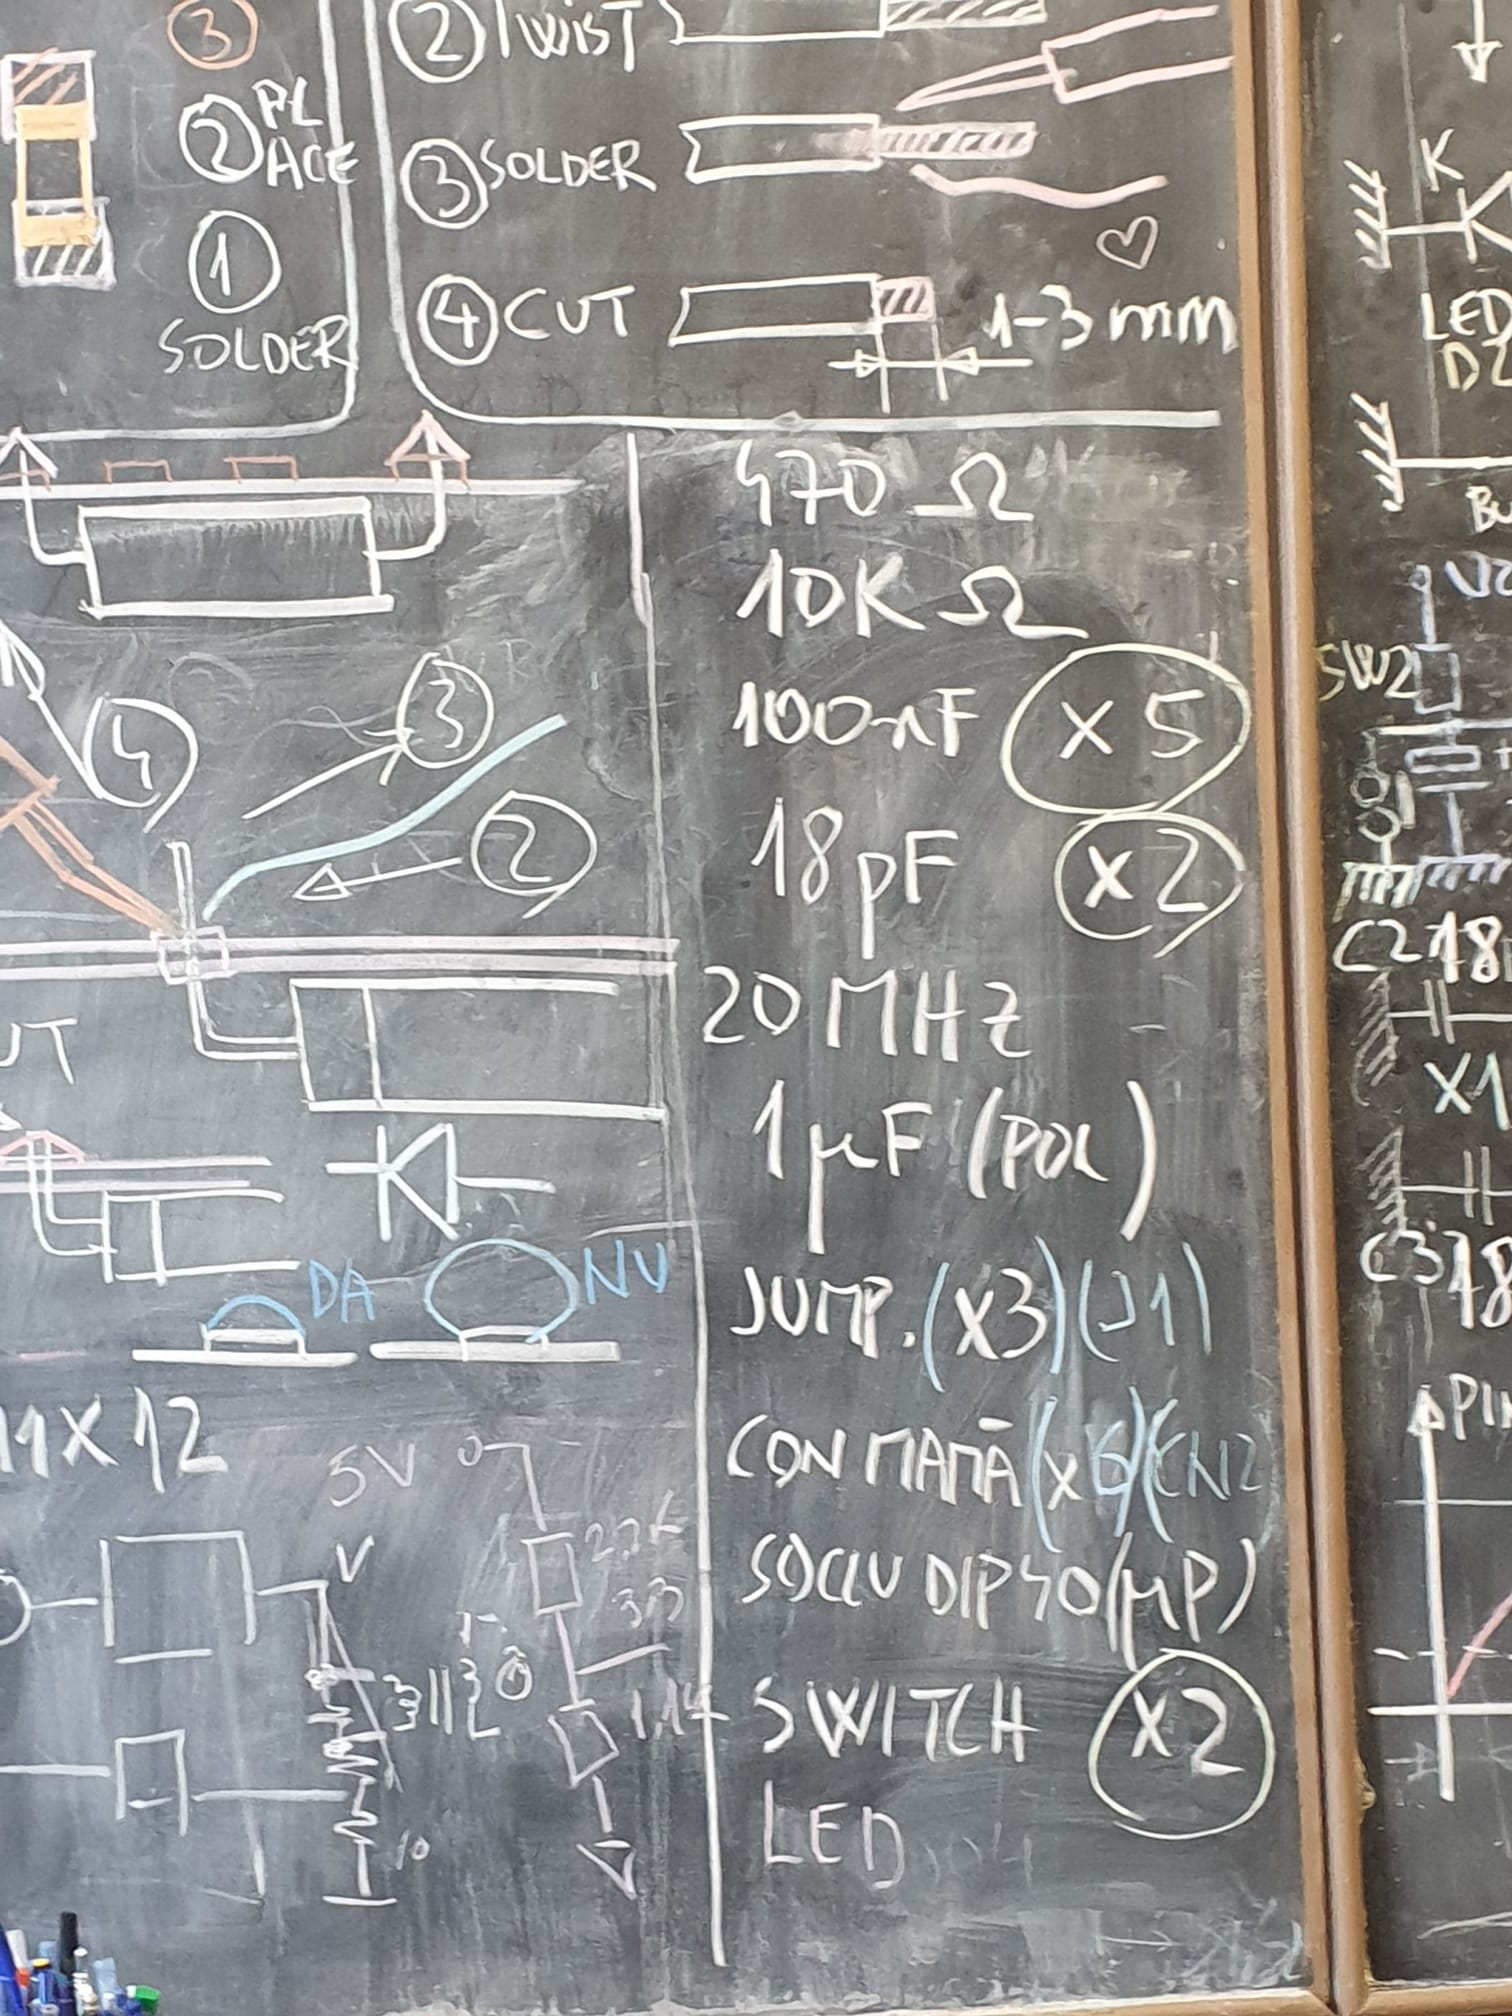 ③
② PL
ACE
①
SOLDER
② TWIST
③ SOLDER
④ CUT
1-3 mm
④
③
②
UT
DA
NU
11X12
5V
2,7K
3,3
V
10
470 Ω
10K Ω
100nF X5
18pF X2
20MHz
1µF (POL)
JUMP. (X3) (J1)
CON MAMĂ (X6) (CN2
SOCLU DIP40 (µP)
SWITCH X2
LED
K
LED
D2
SW2
C2 18
X1
C3 18
PIN